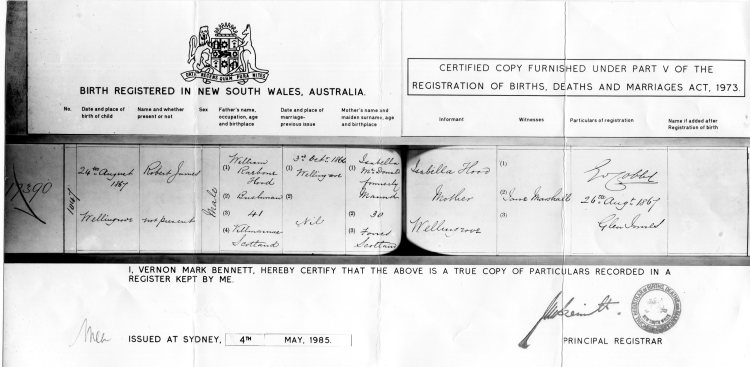 BIRTH REGISTERED IN NEW SOUTH WALES, AUSTRALIA.
CERTIFIED COPY FURNISHED UNDER PART V OF THE
REGISTRATION OF BIRTHS, DEATHS AND MARRIAGES ACT, 1973.
No.
Date and place of
birth of child
Name and whether
present or not
Sex
Father's name,
occupation, age
and birthplace
Date and place of
marriage-
previous issue
Mother's name and
maiden surname, age
and birthplace
Informant
Witnesses
Particulars of registration
Name if added after
Registration of birth
17390
24th August
1867
Wellingrove
Robert James
not present
Male
(1) William
Hood
(2) Bushman
(3) 41
(4) Kilmarnock
Scotland
3rd Octr. 1866
(1) Wellingrove
(2)
Nil
(1) Isabella
McDonald
formerly
(2) 30
(3)
Scotland
Isabella Hood
Mother
Wellingrove
(1)
(2) Jane Marshall
(3)
26th Augt. 1867
Glen Innes
I, VERNON MARK BENNETT, HEREBY CERTIFY THAT THE ABOVE IS A TRUE COPY OF PARTICULARS RECORDED IN A
REGISTER KEPT BY ME.
ISSUED AT SYDNEY, 4TH MAY, 1985.
PRINCIPAL REGISTRAR